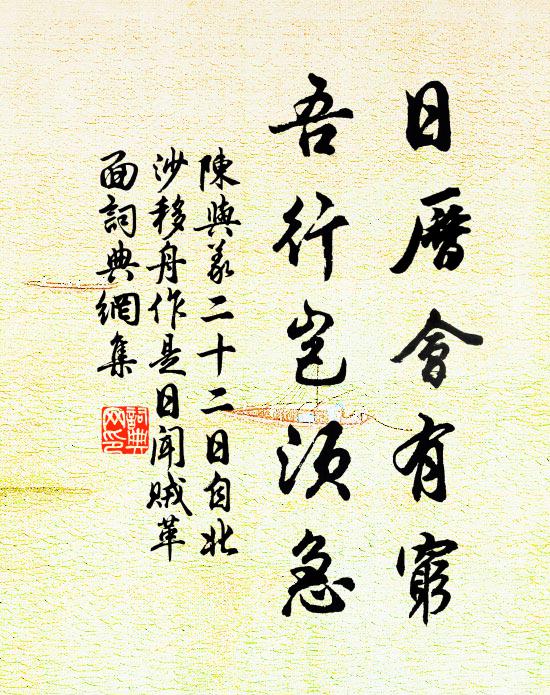 日曆會有窮
吾行岂須急
陳與義二十二日自北
沙移舟作是日聞賊革
面詞典網集
詞典
网印